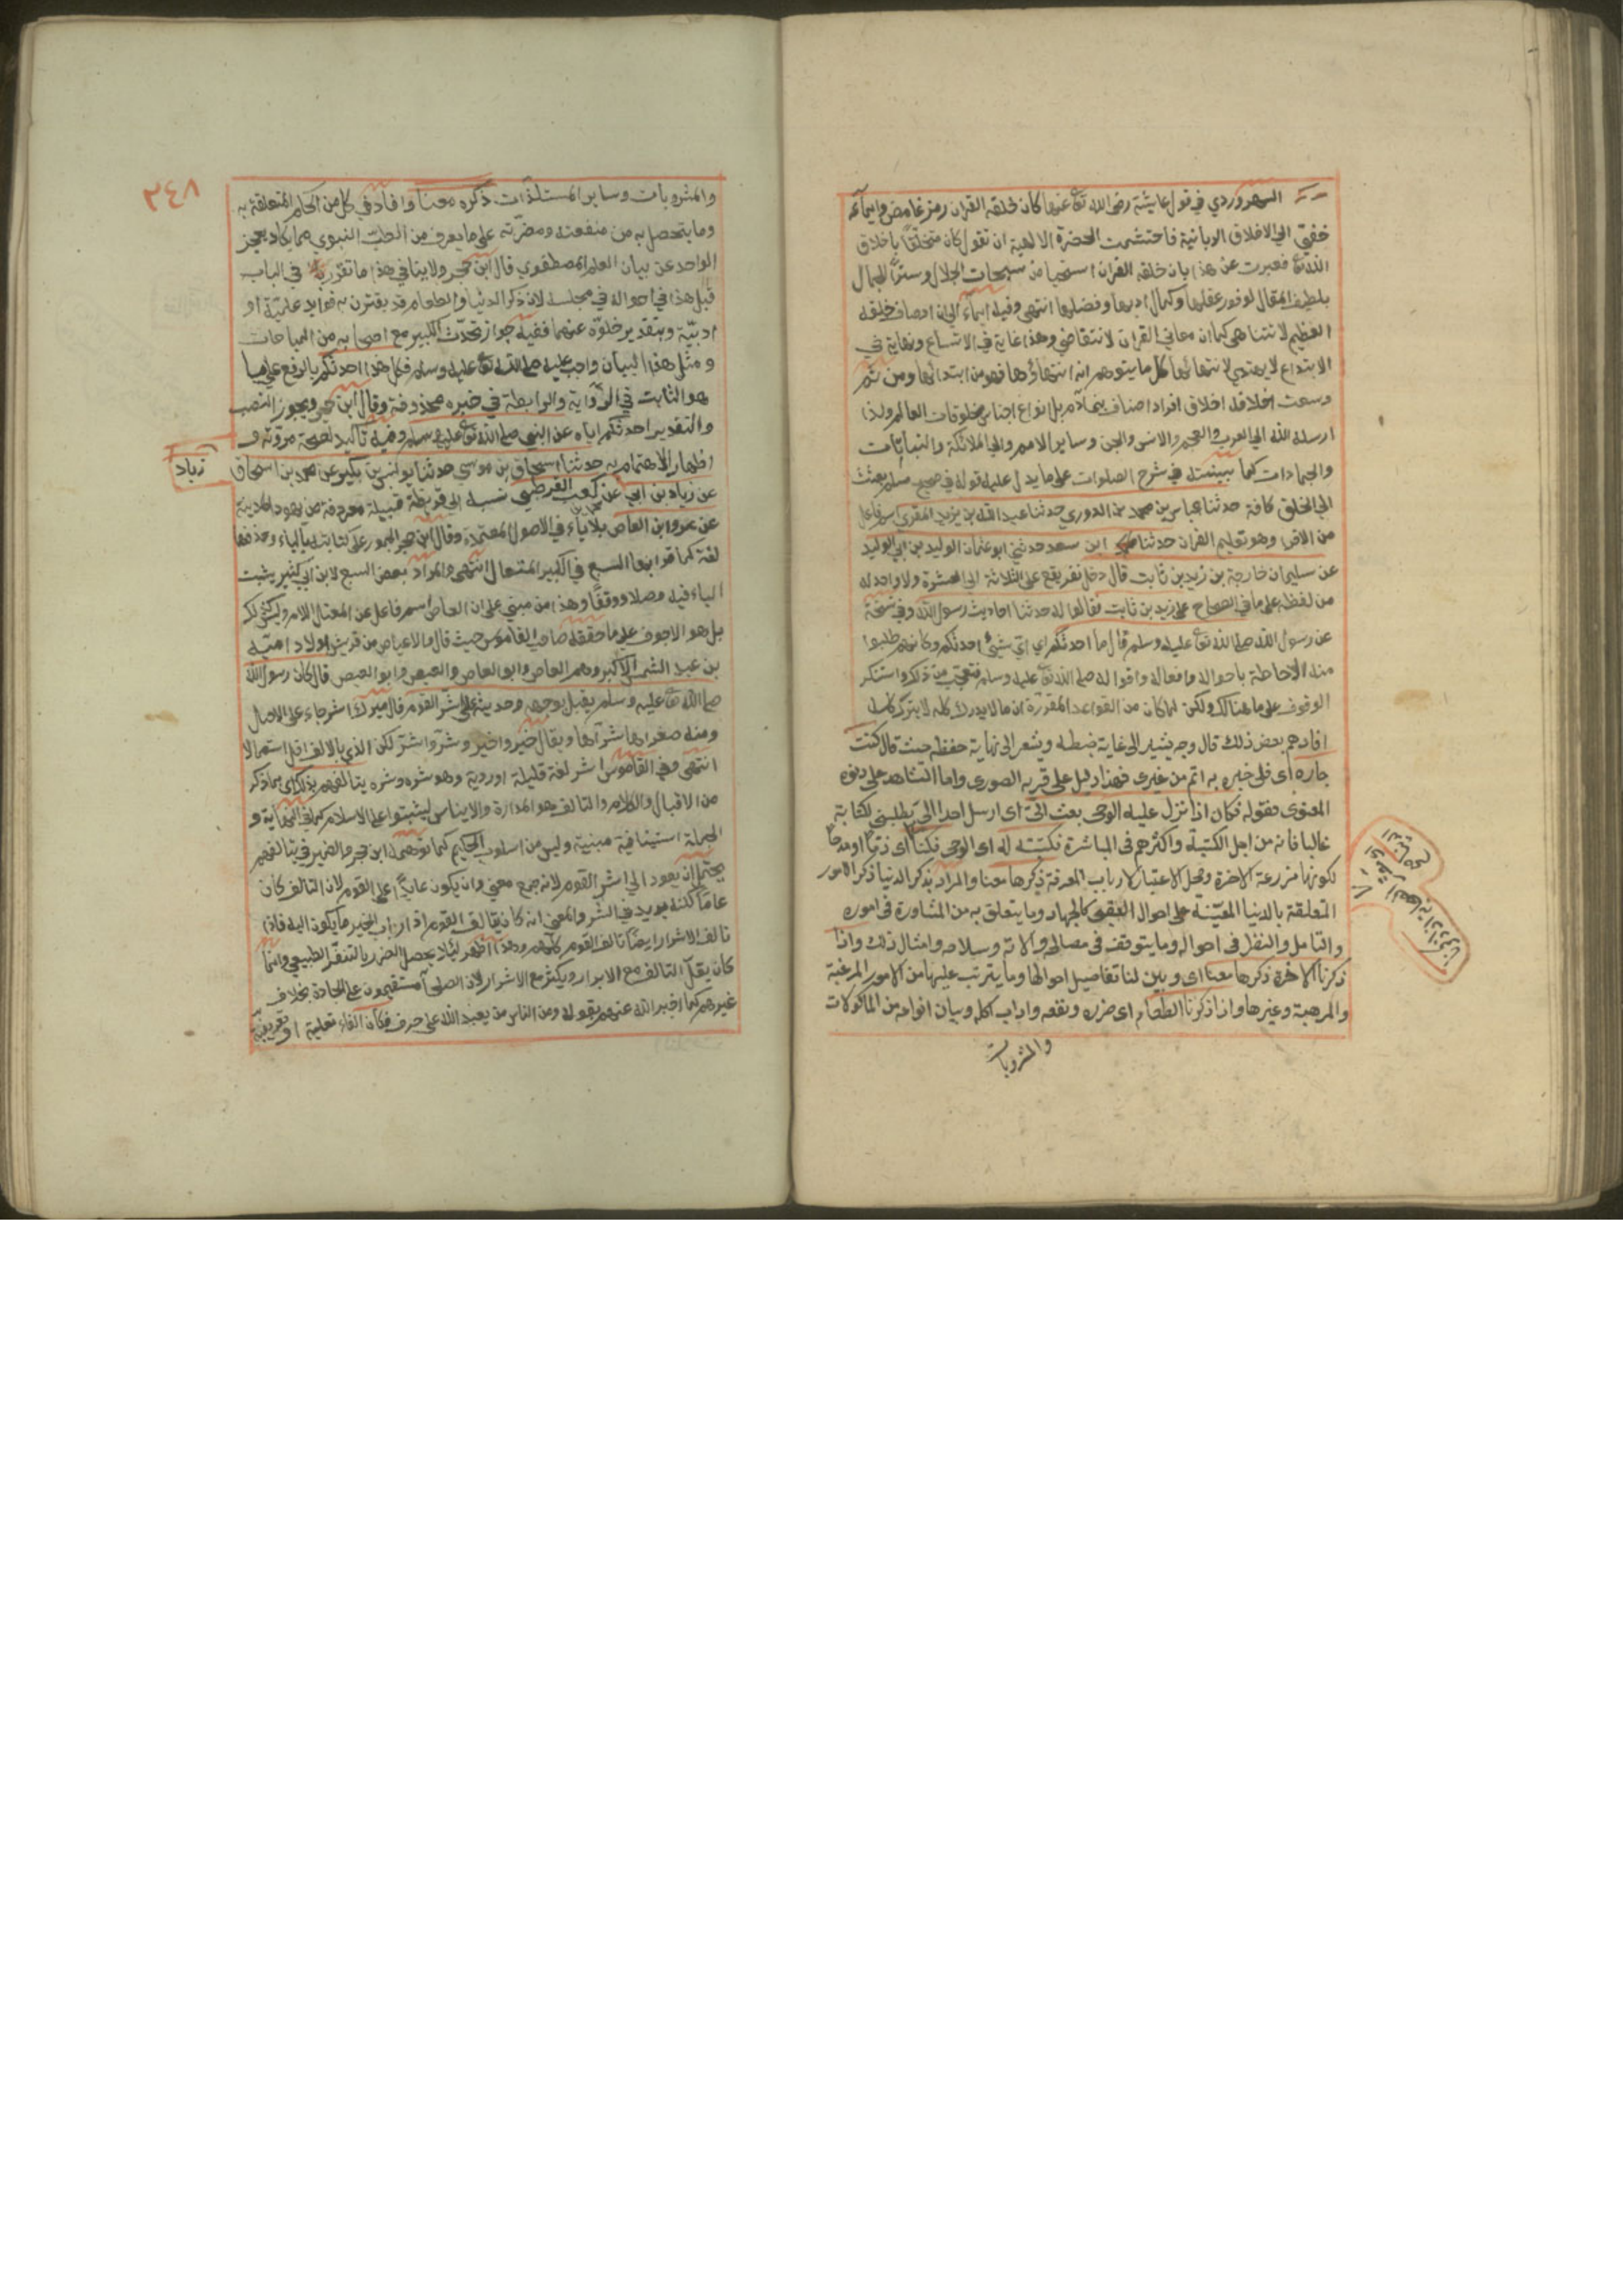 السهروردي في قول عايشة رضى الله تع عنها كان خلقه القران رمز غامض وايماء
خفي الي الاخلاق الربانية فاحتشمت الحضرة الالهية ان تقول كان متخلقا باخلاق
الله تع فعبرت عن هذا بان خلقه القران استحيا من سبحات الجلال وسترا للحال
بلطيف المقال لوفور عقلها وكمال ادبها وفضلها انتهى وفيه ايماء الى ان اوصاف خلقه
العظيم لا تتناهى كما ان معاني القران لا تتقاضي وهذا غاية في الاتساع ونهاية في
الابتداع لا يهتدي لانتهائها كل ما يتوهم انه انتهاؤها فهو من ابتدائها ومن ثم
وسعت اخلاقه اخلاق افراد اصناف بني آدم بل انواع اجناس مخلوقات العالم ولذا
ارسله الله الي العرب والعجم والانس والجن وساير الامم والي الملائكة والنباتات
والجمادات كما بينته في شرح الصلوات على ما يدل عليه قوله في صحيح مسلم بعثت
الي الخلق كافة حدثنا عباس بن محمد الدوري حدثنا عبد الله بن يزيد المقري اسم فاعل
من الاقرا وهو تعليم القران حدثنا ابن سعد حدثني ابو عثمان الوليد بن ابي الوليد
عن سليمان خارجة بن زيد بن ثابت قال دخل نفر يقع على الثلاثة الي العشرة ولا واحد له
من لفظه على ما في الصحاح على زيد بن ثابت فقالوا له حدثنا احاديث رسول الله وفي نسخة
عن رسول الله صلى الله تع عليه وسلم قال ما احدثكم اي اي شيئ احدثكم وكانهم طلبوا
منه الاحاطة باحواله وافعاله واقواله صلى الله تع عليه وسلم فتعجب من ذلك واستنكر
الوقوف على ما هنالك ولكن لما كان من القواعد المقررة ان ما لا يدرك كله لا يترك كله
افادهم بعض ذلك قال وجه يشير الى غاية ضبطه ويشعر الى نهاية حفظه حيث قال كنت
جاره اى فلى خبره به اتم من غيرى فهذا دليل على قربه الصورى واما الشاهد على دنوه
المعنوى فقوله فكان اذا نزل عليه الوحى بعث الى اى ارسل احدا الى يطلبنى لكتابة
غالبا فانه من اجل الكتبة واكثرهم فى المباشرة فكتبته له اى الوحى فكنا
لكونها مزرعة الاخرة ومحل الاعتبار لارباب المعرفة ذكرها معنا والمراد بذكر الدنيا ذكر الامور
المتعلقة بالدنيا المعينة على احوال العقبى كالجهاد وما يتعلق به من المشاورة فى اموره
والتامل والنظر فى احواله وما يتوقف فى مصالحه والاته وسلاحه وامثال ذلك واذا
ذكرنا الاخرة ذكرها معنا اى وبين لنا تفاصيل احوالها وما يترتب عليها من الامور المرغبة
والمرهبة وغيرها واذا ذكرنا الطعام اى ضرره ونفعه واداب اكله وبيان انواعه من الماكولات
والمشروبات
٣٤٨
والمشروبات وساير المستلذات ذكره معنا وافاد في كل من الحكم المتعلقة به
وما يتحصل به من منفعته ومضرته على ما يعرف من الطب النبوي مما يكاد يعجز
الواحد عن بيان العلم المصطفوي قال ابن حجر ولا ينافي هذا ما تقرر في الباب
قبل هذا في احواله في مجلسه لان ذكر الدنيا والطعام قد يقترن به فوايد علمية او
ادبية وبتقدير خلوه عنهما ففيه جواز تحدث الكبير مع اصحابه من المباحات
ومثل هذا البيان واجب عليه صلى الله تع عليه وسلم فكل هذا احدثكم بالرفع على ما
هو الثابت في الرواية والرابطة في خبره محذوفة وقال ابن حجر ويجوز النصب
والتقدير احدثكم اياه عن النبي صلى الله تع عليه وسلم وفيه تاكيد لصحة مرويه و
اظهار الاهتمام به حدثنا اسحاق بن موسي حدثنا يونس بن بكير عن محمد بن اسحاق
زياد
عن زياد بن ابي عن محمد بن كعب القرظي نسبه الي قريظة قبيلة معروفة من يهود المدينة
عن عمرو ابن العاص بلا ياء في الاصول المعتمدة وقال ابن حجر الجمهور على كتابته بالياء وحذفها
لغة كما قرا بها السبع في الكبير المتعال انتهى والمراد بعض السبع لابن ابي كثير يثبت
الياء فيه وصلا ووقفا وهذا من مبني على ان العاص اسم فاعل عن المعتل الامر وليس كذلك
بل هو الاجوف على ما حققه صاحب القاموس حيث قال والاعياص من قريش اولاد امية
بن عبد الشمس الاكبر وهم العاص وابو العاص والعيص وابو العيص قال كان رسول الله
صلى الله تع عليه وسلم يقبل بوجهه وحديثه على اشر القوم قال ميرك اشر جاء على الاصل
ومنه صغراها شراها ويقال خير واخير وشر واشر لكن الذي بالالف اقل استعمالا
انتهى وفي القاموس اشر لغة قليلة او ردية وهو شره وشره يتالفهم بذلك اى بما ذكر
من الاقبال والكلام والتالف هو المدارة والايناس ليثبتوا على الاسلام كما في النهاية و
الجملة استينافية مبنية وليس من اسلوب الحكيم كما توهمه ابن حجر والضمير في يتالفهم
يحتمل ان يعود الي اشر القوم لانه جمع معني وان يكون عايدا على القوم لان التالف كان
عاما لكنه يزيد في الشر والمعنى انه كان يتالف القوم اذ ارباب الخير مايلون اليه فاذا
تالف الاشرار ايضا تالف القوم كلهم وهذا اظهر ليلا يحصل الضرر بالتنفر الطبيعي وانما
كان يقل التالف مع الابرار ويكثر مع الاشرار لان الصلحآ مستقيمون على الجادة بخلاف
غيرهم كما اخبر الله عنهم بقوله ومن الناس من يعبد الله على حرف فكان الفاء تعليلية او تعريفية